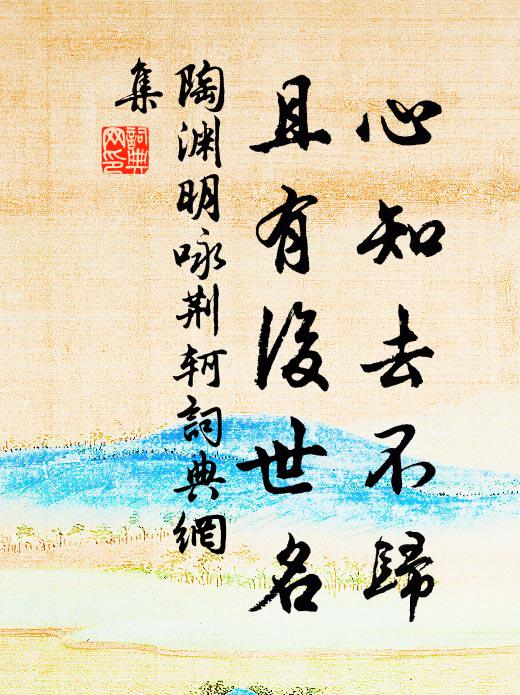 心知去不歸
且有後世名
陶渊明咏荆轲詞典網
集
詞典
网印